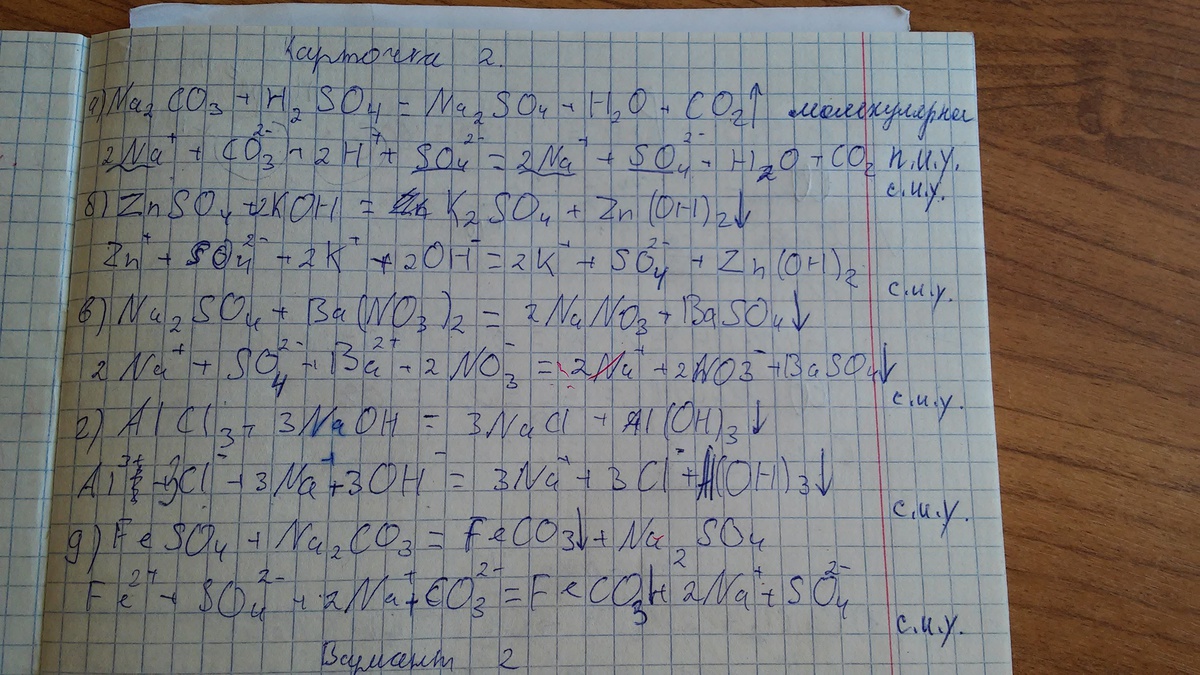 Карточка 2.
а) Na₂CO₃ + H₂SO₄ = Na₂SO₄ + H₂O + CO₂↑ молекулярное
2Na⁺ + CO₃²⁻ + 2H⁺ + SO₄²⁻ = 2Na⁺ + SO₄²⁻ + H₂O + CO₂ п.и.у.
с.и.у.
б) ZnSO₄ + 2KOH = K₂SO₄ + Zn(OH)₂↓
Zn⁺ + SO₄²⁻ + 2K⁺ + 2OH⁻ = 2K⁺ + SO₄²⁻ + Zn(OH)₂
с.и.у.
в) Na₂SO₄ + Ba(NO₃)₂ = 2NaNO₃ + BaSO₄↓
2Na⁺ + SO₄²⁻ + Ba²⁺ + 2NO₃⁻ = 2Na⁺ + 2NO₃⁻ + BaSO₄↓
с.и.у.
г) AlCl₃ + 3NaOH = 3NaCl + Al(OH)₃↓
Al³⁺ + 3Cl⁻ + 3Na⁺ + 3OH⁻ = 3Na⁺ + 3Cl⁻ + Al(OH)₃↓
с.и.у.
д) FeSO₄ + Na₂CO₃ = FeCO₃↓ + Na₂SO₄
Fe²⁺ + SO₄²⁻ + 2Na⁺ + CO₃²⁻ = FeCO₃↓ + 2Na⁺ + SO₄²⁻
с.и.у.
Вариант 2